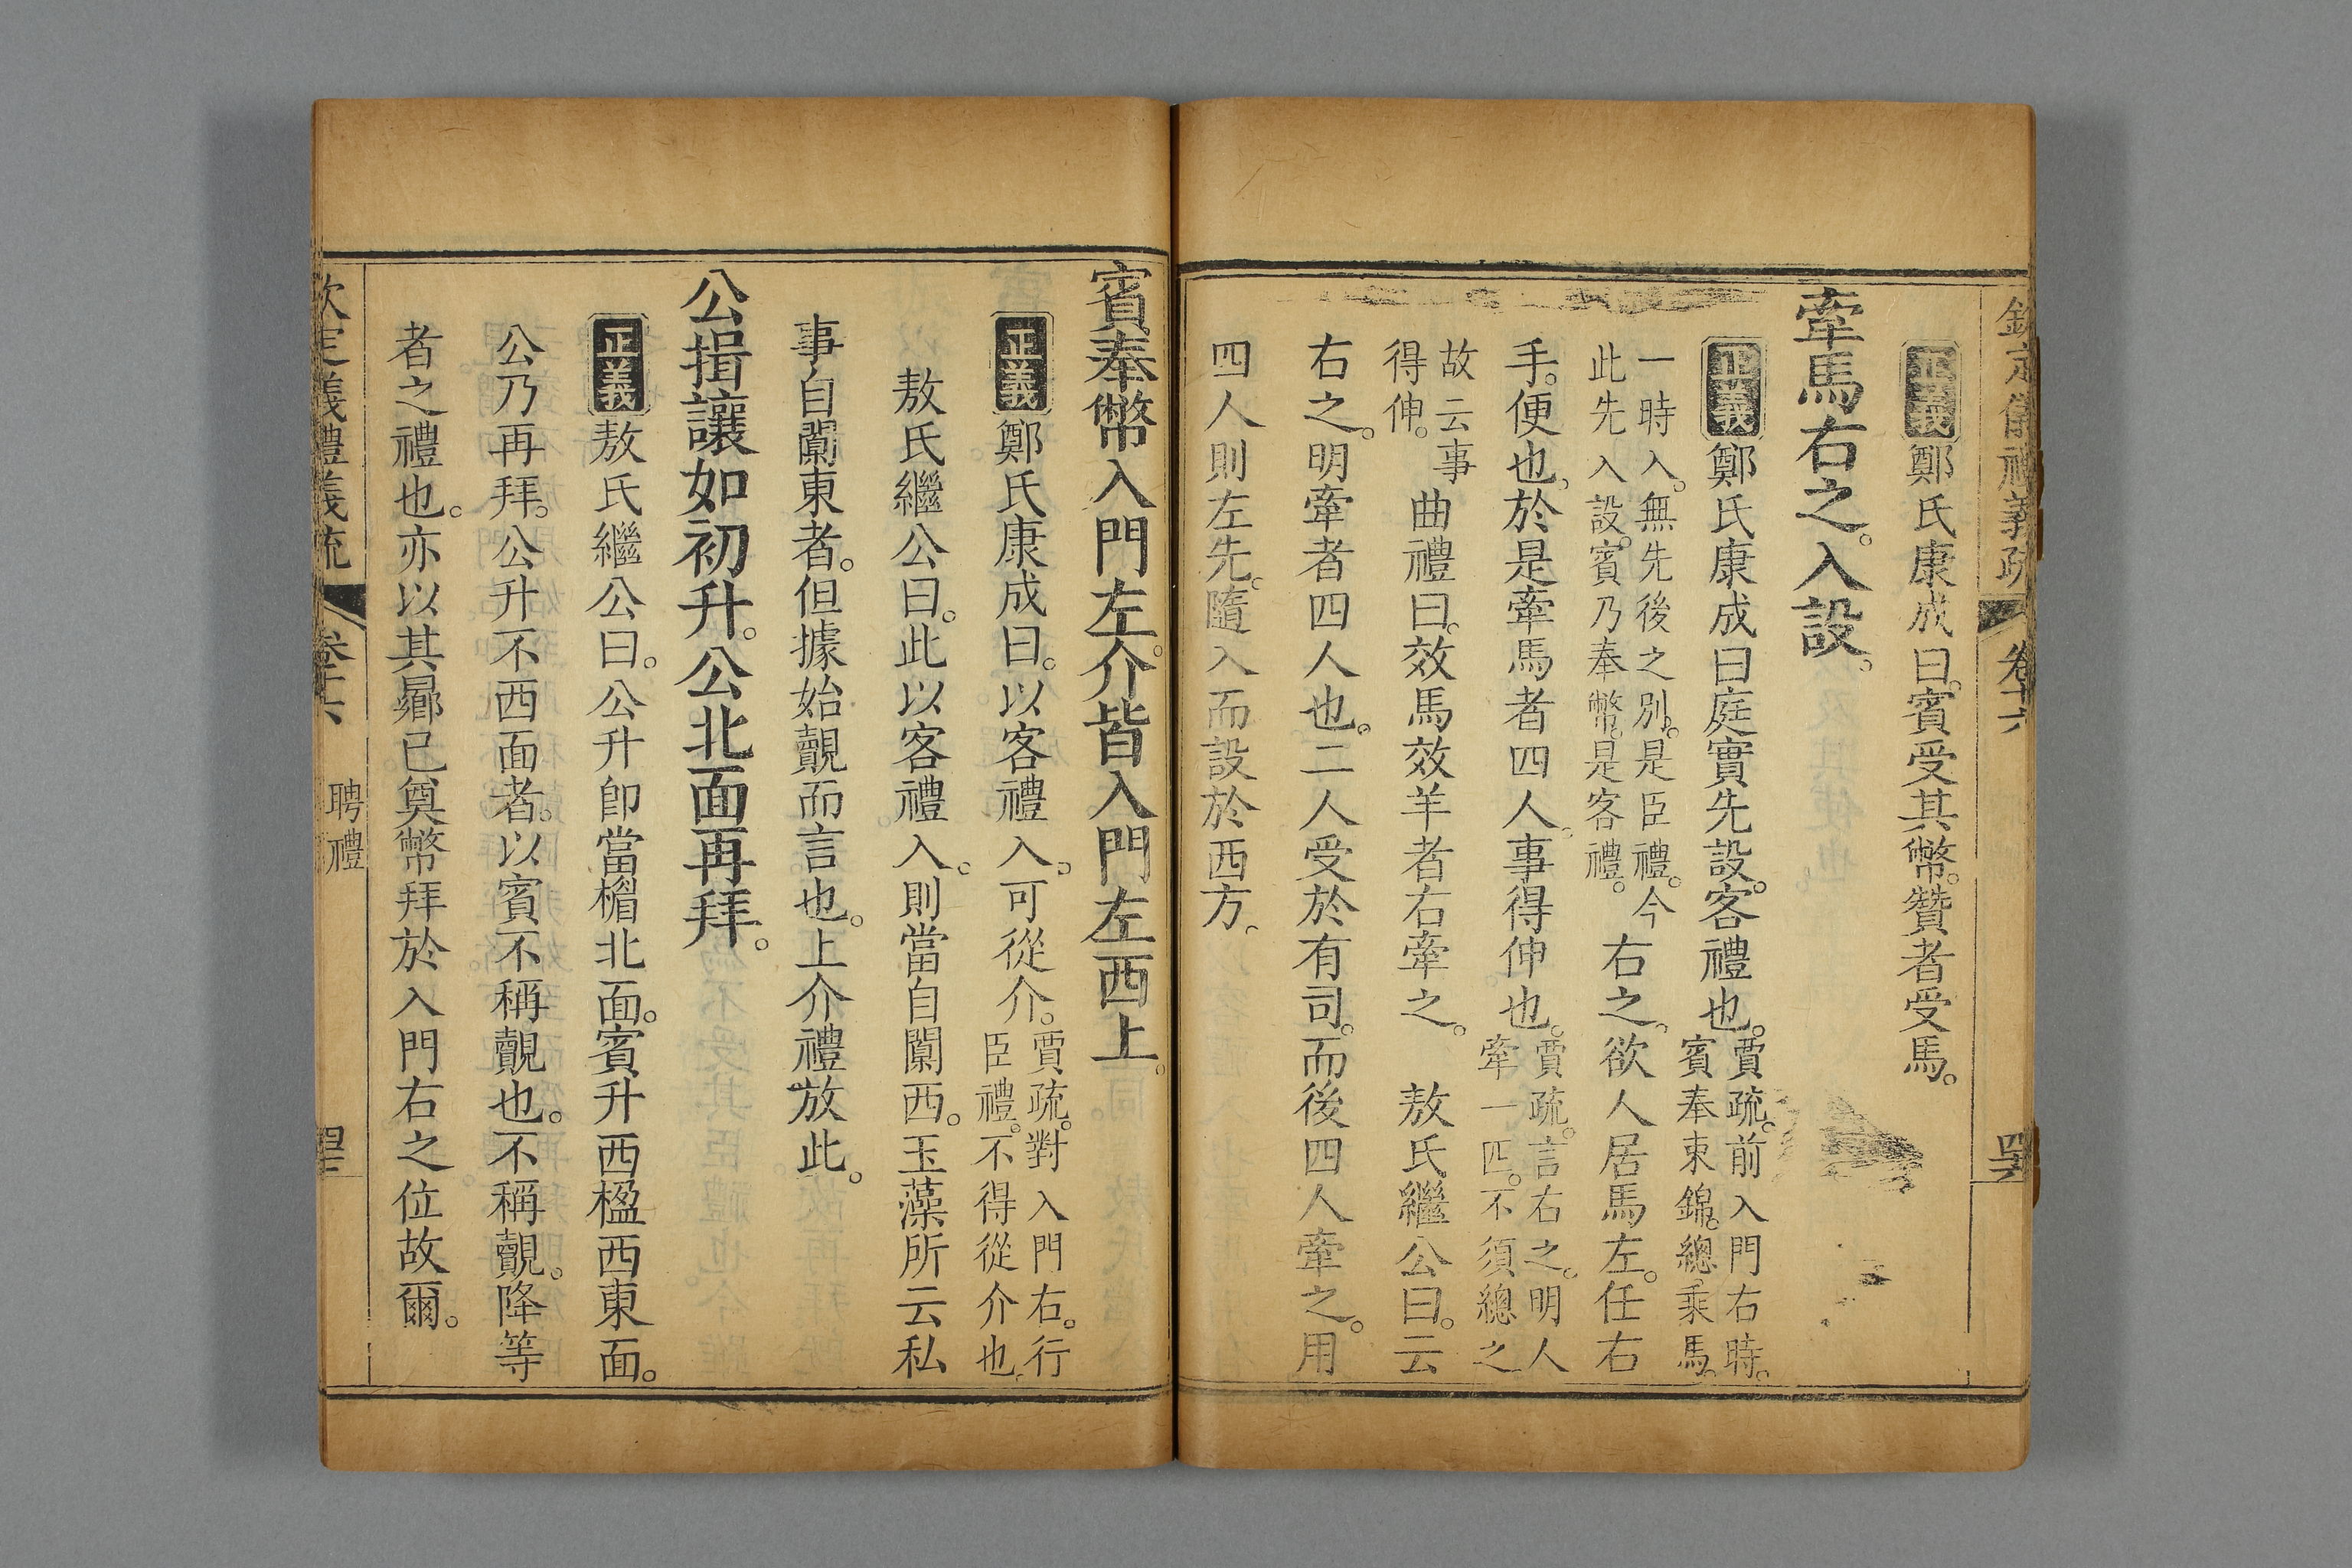 欽定儀禮義疏 卷十六
正義鄭氏康成曰。賓受其幣。贊者受馬。
牽馬右之。入設。
正義鄭氏康成曰庭實先設。客禮也。賈疏。前入門右時。賓奉束錦。總乘馬。
一時入。無先後之別。是臣禮。今此先入設。賓乃奉幣。是客禮。右之。欲人居馬左。任右
手。便也。於是牽馬者四人。事得伸也。賈疏。言右之。明人牽一匹。不須總之
故云事得伸。曲禮曰。效馬效羊者右牽之。 敖氏繼公曰。云
右之。明牽者四人也。二人受於有司。而後四人牽之。用
四人則左先。隨入而設於西方。
賓奉幣入門左。介皆入門左西上。
正義鄭氏康成曰。以客禮入。可從介。賈疏。對入門右。行臣禮。不得從介也。
敖氏繼公曰。此以客禮入。則當自闑西。玉藻所云私
事自闑東者。但據始覿而言也。上介禮放此。
公揖讓如初升。公北面再拜。
正義敖氏繼公曰。公升卽當楣北面。賓升西楹西東面。
公乃再拜。公升不西面者。以賓不稱覿也。不稱覿。降等
者之禮也。亦以其曏已奠幣拜於入門右之位故爾。
欽定義禮義疏 卷十六 聘禮